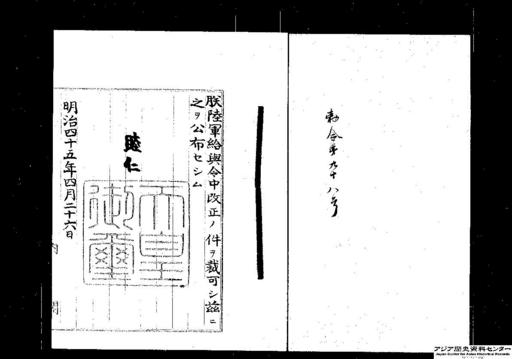 勅令第九十八号
朕陸軍給與令中改正ノ件ヲ裁可シ茲ニ
之ヲ公布セシム
睦仁
天皇
御璽
明治四十五年四月二十六日
内閣
アジア歴史資料センター
Japan Center for Asian Historical Records